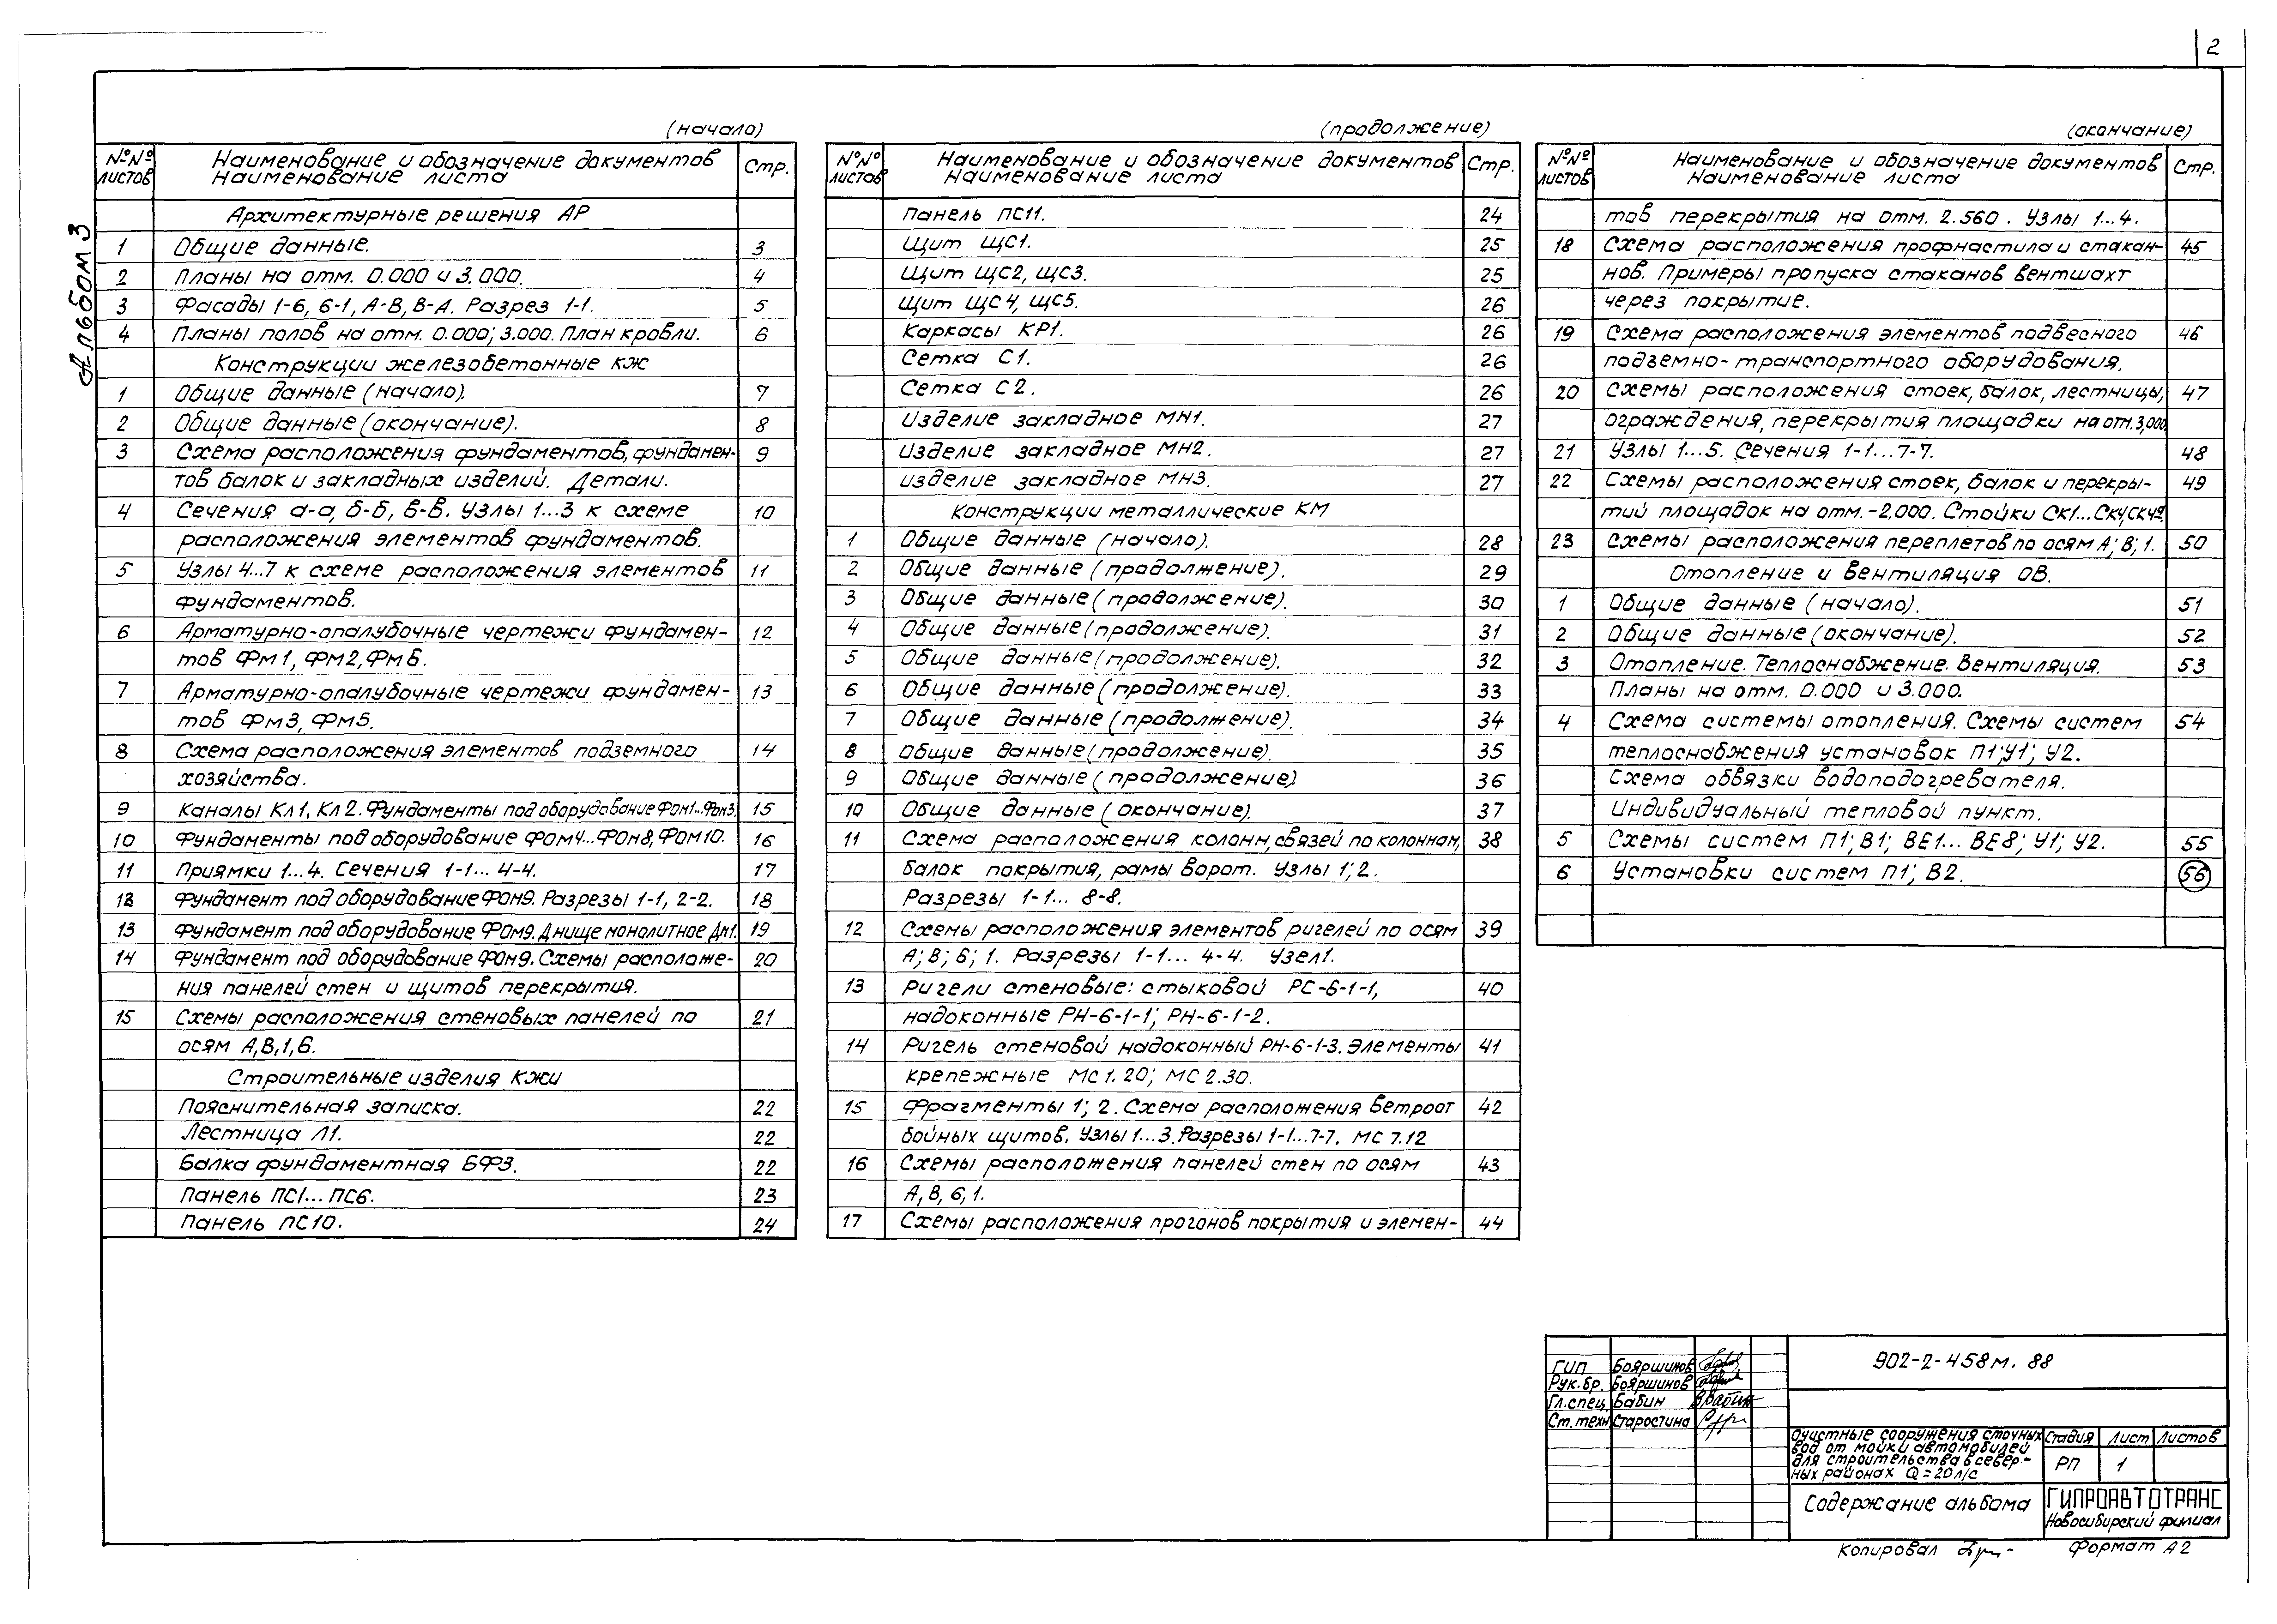 2
Альбом 3
(начало)
№№ листов Наименование и обозначение документов Наименование листа Стр.
Архитектурные решения АР
1 Общие данные. 3
2 Планы на отм. 0.000 и 3.000. 4
3 Фасады 1-6, 6-1, А-В, В-А. Разрез 1-1. 5
4 Планы полов на отм. 0.000; 3.000. План кровли. 6
Конструкции железобетонные КЖ
1 Общие данные (начало). 7
2 Общие данные (окончание). 8
3 Схема расположения фундаментов, фундамен- 9
тов балок и закладных изделий. Детали.
4 Сечения а-а, б-б, в-в. Узлы 1...3 к схеме 10
расположения элементов фундаментов.
5 Узлы 4...7 к схеме расположения элементов 11
фундаментов.
6 Арматурно-опалубочные чертежи фундамен- 12
тов Фм1, Фм2, Фм6.
7 Арматурно-опалубочные чертежи фундамен- 13
тов Фм3, Фм5.
8 Схема расположения элементов подземного 14
хозяйства.
9 Каналы Кл1, Кл2. Фундаменты под оборудование Фом1...Фом3. 15
10 Фундаменты под оборудование Фом4...Фом8, Фом10. 16
11 Приямки 1...4. Сечения 1-1... 4-4. 17
12 Фундамент под оборудование Фом9. Разрезы 1-1, 2-2. 18
13 Фундамент под оборудование Фом9. Днище монолитное Дм1. 19
14 Фундамент под оборудование Фом9. Схемы расположе- 20
ния панелей стен и щитов перекрытия.
15 Схемы расположения стеновых панелей по 21
осям А,В,1,6.
Строительные изделия КЖИ
Пояснительная записка. 22
Лестница Л1. 22
Балка фундаментная БФ3. 22
Панель ПС1... ПС6. 23
Панель ПС10. 24
(продолжение)
№№ листов Наименование и обозначение документов Наименование листа Стр.
Панель ПС11. 24
Щит ЩС1. 25
Щит ЩС2, ЩС3. 25
Щит ЩС4, ЩС5. 26
Каркасы КР1. 26
Сетка С1. 26
Сетка С2. 26
Изделие закладное МН1. 27
Изделие закладное МН2. 27
изделие закладное МН3. 27
Конструкции металлические КМ
1 Общие данные (начало). 28
2 Общие данные (продолжение). 29
3 Общие данные (продолжение). 30
4 Общие данные (продолжение). 31
5 Общие данные (продолжение). 32
6 Общие данные (продолжение). 33
7 Общие данные (продолжение). 34
8 Общие данные (продолжение). 35
9 Общие данные (продолжение) 36
10 Общие данные (окончание). 37
11 Схема расположения колонн, связей по колоннам, 38
балок покрытия, рамы ворот. Узлы 1; 2.
Разрезы 1-1... 8-8.
12 Схемы расположения элементов ригелей по осям 39
А; В; 6; 1. Разрезы 1-1... 4-4. Узел1.
13 Ригели стеновые: стыковой РС-6-1-1, 40
надоконные РН-6-1-1; РН-6-1-2.
14 Ригель стеновой надоконный РН-6-1-3. Элементы 41
крепежные МС1.20; МС2.30.
15 Фрагменты 1; 2. Схема расположения ветроот 42
бойных щитов. Узлы 1...3. Разрезы 1-1...7-7. МС 7.12
16 Схемы расположения панелей стен по осям 43
А, В, 6, 1.
17 Схемы расположения прогонов покрытия и элемен- 44
(окончание)
№№ листов Наименование и обозначение документов Наименование листа Стр.
тов перекрытия на отм. 2.560. Узлы 1...4.
18 Схема расположения профнастила и стакан- 45
нов. Примеры пропуска стаканов вентшахт
через покрытие.
19 Схема расположения элементов подвесного 46
подземно-транспортного оборудования.
20 Схемы расположения стоек, балок, лестницы, 47
ограждения, перекрытия площадки на отм. 3,000.
21 Узлы 1...5. Сечения 1-1...7-7. 48
22 Схемы расположения стоек, балок и перекры- 49
тий площадок на отм. -2,000. Стойки СК1...СК4, СК4а.
23 Схемы расположения переплетов по осям А; В; 1. 50
Отопление и вентиляция ОВ.
1 Общие данные (начало). 51
2 Общие данные (окончание). 52
3 Отопление. Теплоснабжение. Вентиляция. 53
Планы на отм. 0.000 и 3.000.
4 Схема системы отопления. Схемы систем 54
теплоснабжения установок П1; У1; У2.
Схема обвязки водоподогревателя.
Индивидуальный тепловой пункт.
5 Схемы систем П1; В1; ВЕ1... ВЕ8; У1; У2. 55
6 Установки систем П1; В2. 56
ГИП Бояршинов
Рук. бр. Бояршинов
Гл. спец. Бабин
Ст. техн Старостина
902-2-458м. 88
Очистные сооружения сточных
вод от мойки автомобилей
для строительства в север-
ных районах Q=20л/с
Стадия Лист Листов
РП 1
Содержание альбома
ГИПРОАВТОТРАНС
Новосибирский филиал
Копировал
Формат А2